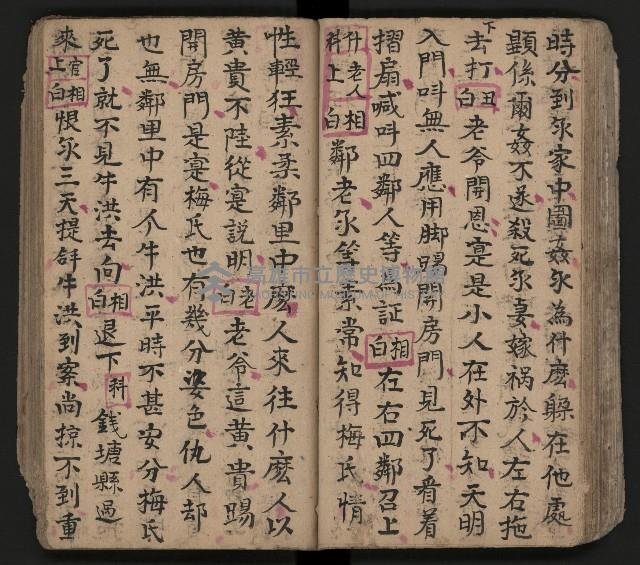 時分到尔家中圖姦尔為什麼躲在他處
顕係爾姦不遂殺死尔妻嫁祸於人左右拖
下去打丑白老爷開恩寔是小人在外不知天明
入門叫無人應用脚踢開房門見死了看着
摺扇喊叫四鄰人等為証相白左右四鄰召上
科上什老人相白鄰老尔等素常知得梅氏情
性輕狂素柔鄰里中麼人來往什麽人以
黄貴不陸從寔説明老白老爷這黄貴踢
開房門是寔梅氏也有幾分姿色仇人却
也無鄰里中有个牛洪平時不甚安分梅氏
死了就不見牛洪去向相白退下科錢塘縣过
來上官相白恨尔三天提㪷牛洪到案尚掠不到重
高雄市立歷史博物館
KAOHSIUNG MUSEUM OF HISTORY